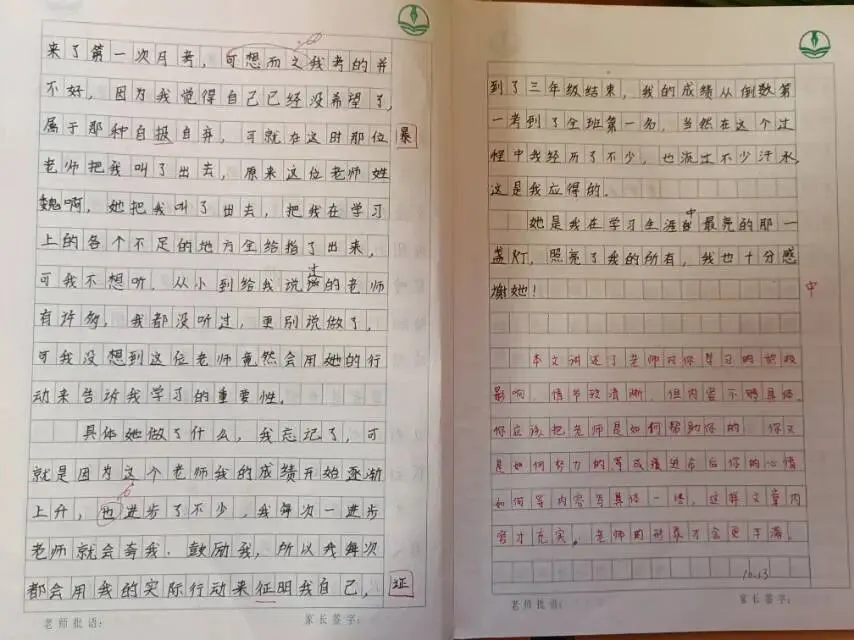 来了第一次月考，可想而文我考的并
不好，因为我觉得自己已经没希望了，
属于那种自报自弃，可就在这时那位
暴
老师把我叫了出去，原来这位老师姓
魏啊，她把我叫了出去，把我在学习
上的各个不足的地方全给指了出来，
可我不想听，从小到给我说过的老师
有许多，我都没听过，更别说做了，
可我没想到这位老师竟然会用她的行
动来告诉我学习的重要性。
具体她做了什么，我忘记了，可
就是因为这个老师我的成绩开始逐渐
上升，也进步了不少，我每次一进步
老师就会夸我，鼓励我，所以我每次
都会用我的实际行动来征明我自己，
证
老师批语： 家长签字：
到了三年级结束，我的成绩从倒数第
一考到了全班第一名，当然在这个过
程中我经历了不少，也流过不少汗水，
这是我应得的。
她是我在学习生涯中最亮的那一
盏灯，照亮了我的所有，我也十分感
谢她！
中
本文讲述了老师对你学习的积极
影响，情节较清晰，但内容不够具体。
你应该把老师是如何帮助你的，你又
是如何努力的，等成绩进步后你的心情
如何等内容写具体一些，这样文章内
容才充实，老师的形象才会更丰满。
10.13
老师批语： 家长签字：